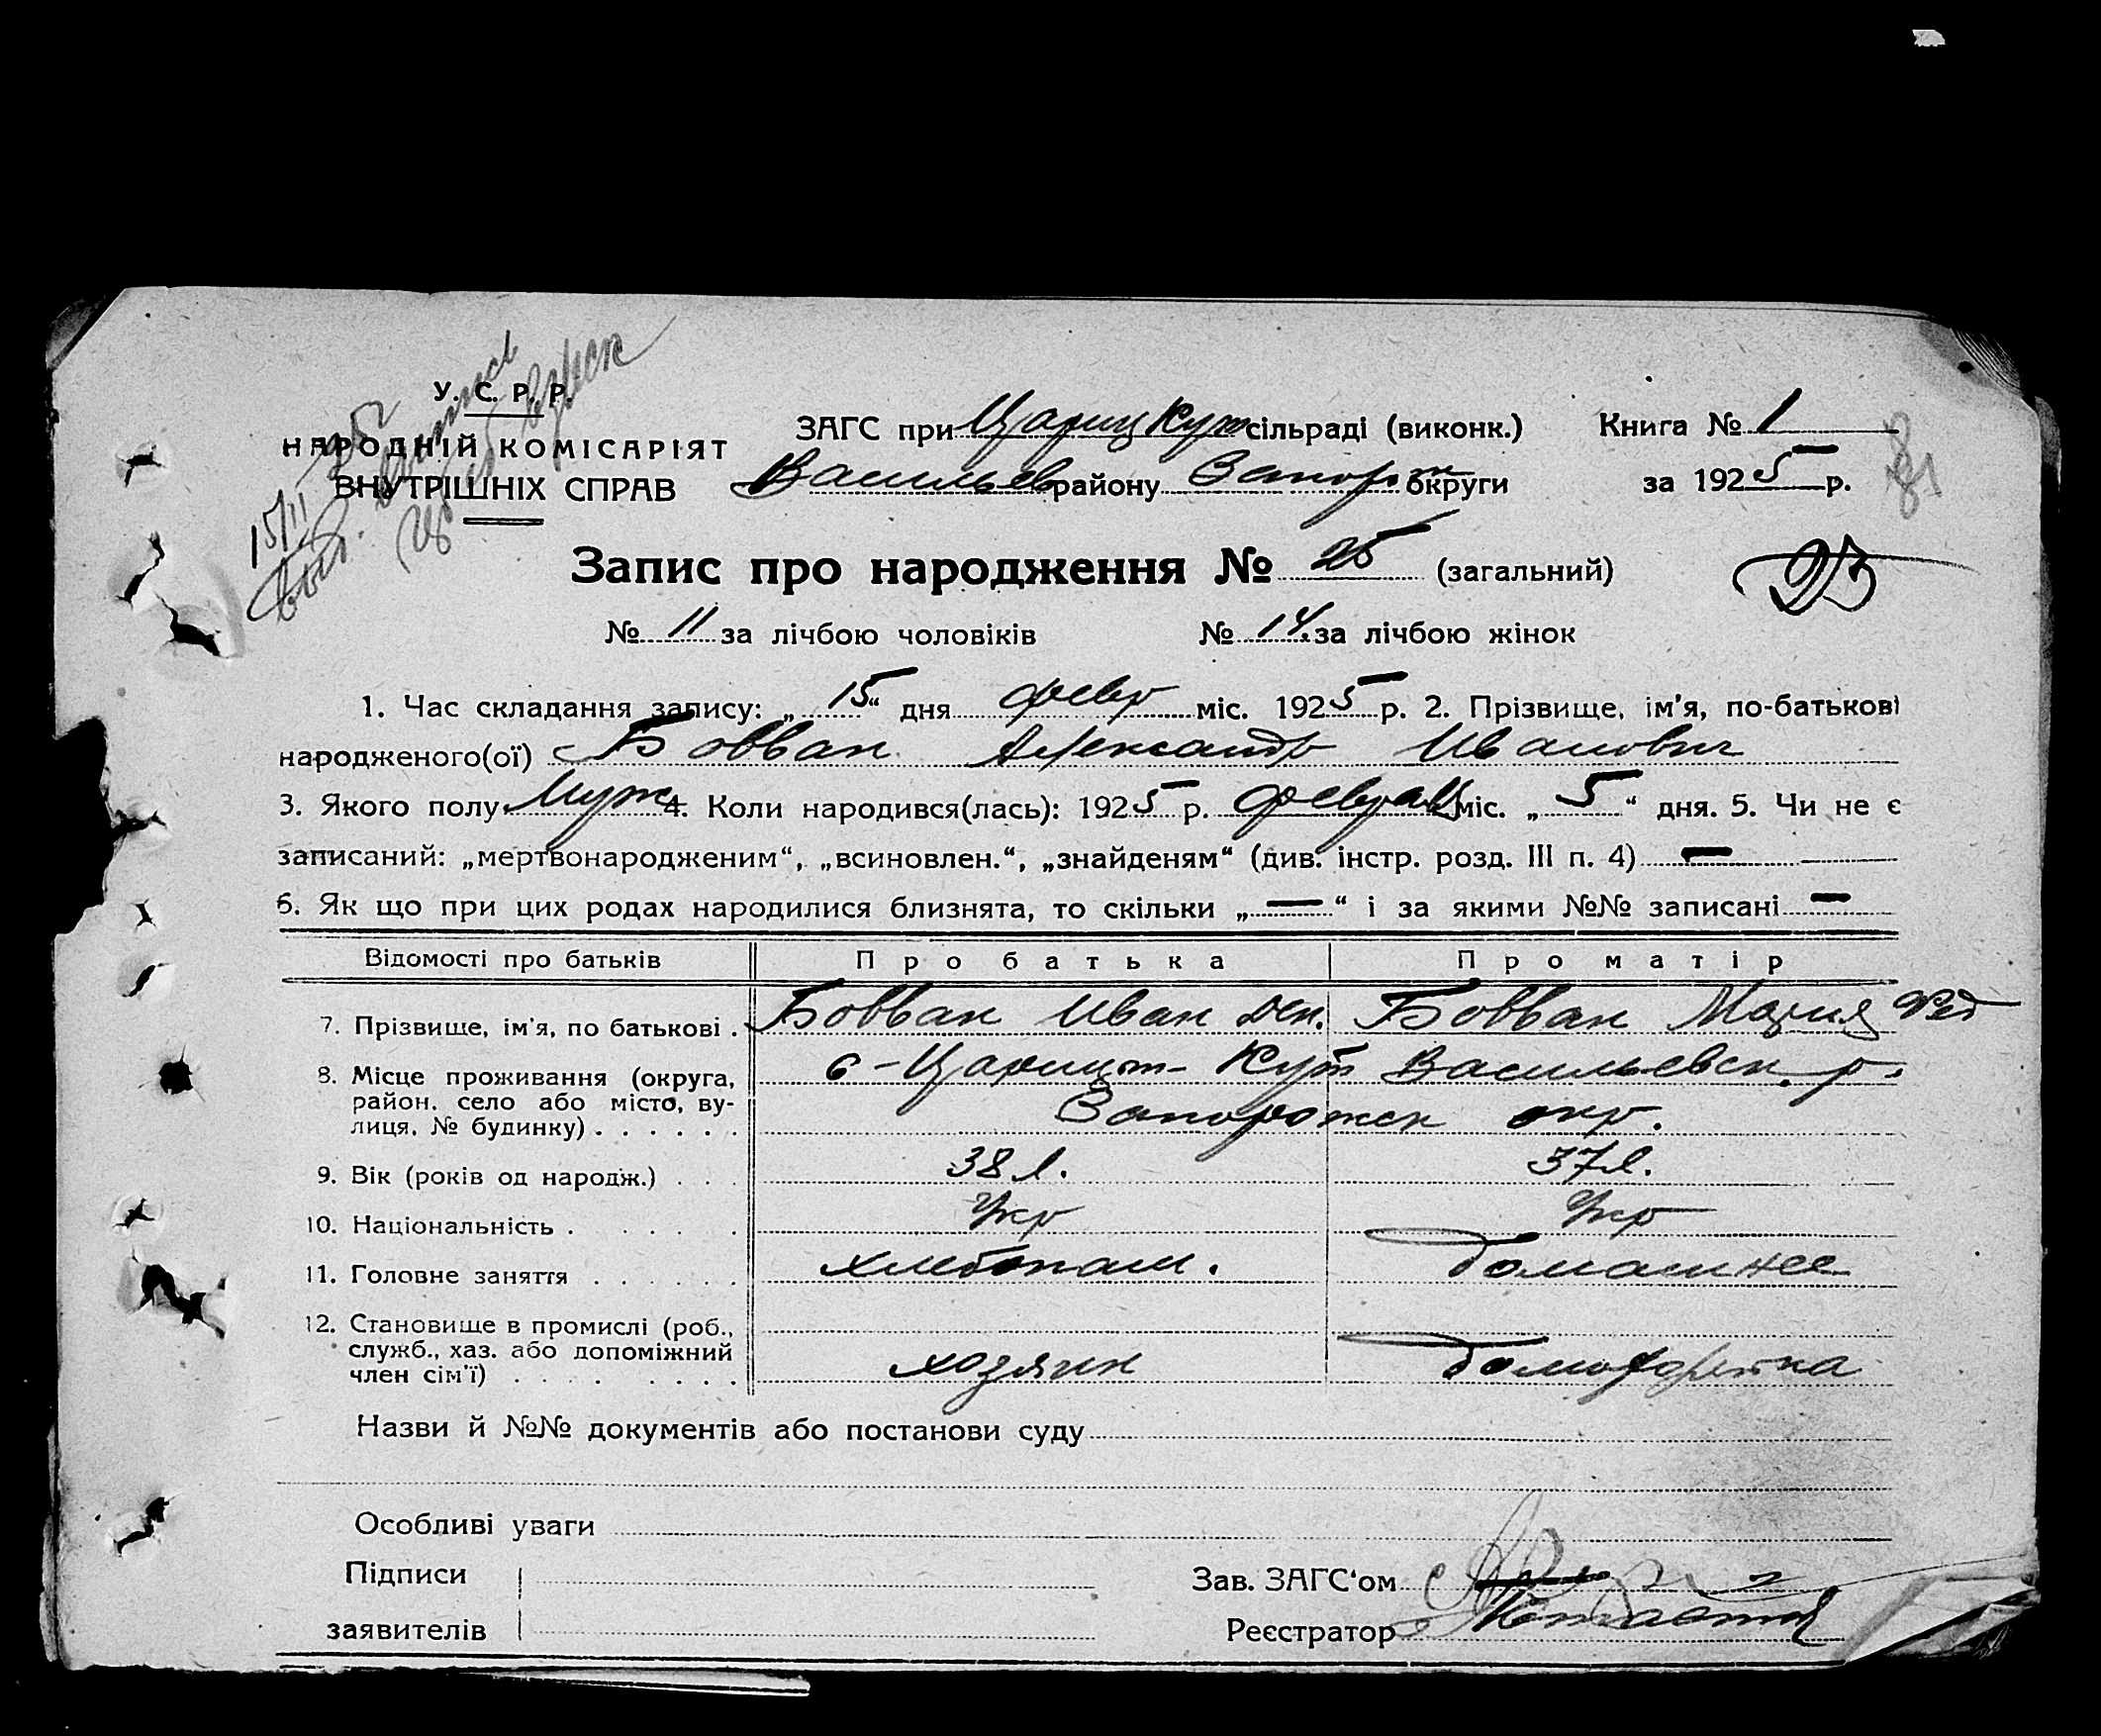 У. С. Р. Р.
НАРОДНІЙ КОМІСАРІЯТ
ВНУТРІШНІХ СПРАВ
15/II
ЗАГС при Цариц Кут сільраді (виконк.) Книга № 1
Васильев району Запорж округи за 1925 р.
81
Запис про народження № 25 (загальний)
25
№ 11 за лічбою чоловіків № 14 за лічбою жінок
1. Час складання запису: „15“ дня февр міс. 1925 р. 2. Прізвище, ім'я, по-батькові
народженого(ої) Бовван Александр Иванович
3. Якого полу Муж 4. Коли народився(лась): 1925 р. февраль міс. „5“ дня. 5. Чи не є
записаний: „мертвонародженим“, „всиновлен.“, „знайденям“ (див. інстр. розд. III п. 4) —
6. Як що при цих родах народилися близнята, то скільки „—“ і за якими №№ записані —
Відомості про батьків Про батька Про матір
7. Прізвище, ім'я, по батькові . Бовван Иван Бовван Мария Фед
8. Місце проживання (округа, с-Царицт- Кут Васильевск. р.
район, село або місто, ву- Запорожск окр.
лиця, № будинку) . . . . . .
9. Вік (років од народж.) . . . 38 л. 37 л.
10. Національність . . . . . Укр Укр
11. Головне заняття . . . . . . хлебопаш. домашнее
12. Становище в промислі (роб.,
служб., хаз. або допоміжний хозяин
член сім'ї) . . . . . . . . .
Назви й №№ документів або постанови суду
Особливі уваги
Підписи
заявителів
Зав. ЗАГС'ом
Реєстратор